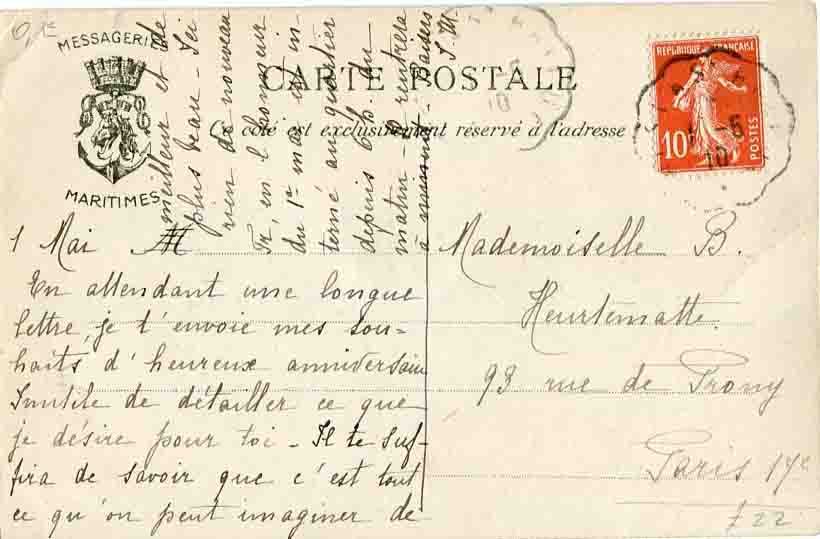 MESSAGERIES
MARITIMES
CARTE POSTALE
Ce côté est exclusivement réservé à l'adresse
RÉPUBLIQUE FRANÇAISE
10
POSTES
1 Mai
En attendant une longue
lettre, je t'envoie mes sou-
haits d'heureux anniversaire
Inutile de détailler ce que
je désire pour toi - Il te suf-
fira de savoir que c'est tout
ce qu'on peut imaginer de
meilleur et de
plus beau - Ici
rien de nouveau
Fr, en l'honneur
du 1er mai est in-
terné au quartier
depuis 6 h. du
matin - rentrera
à minuit - Baisers
S. M.
Mademoiselle B.
Heurtematte.
93 rue de Prony
Paris 17e